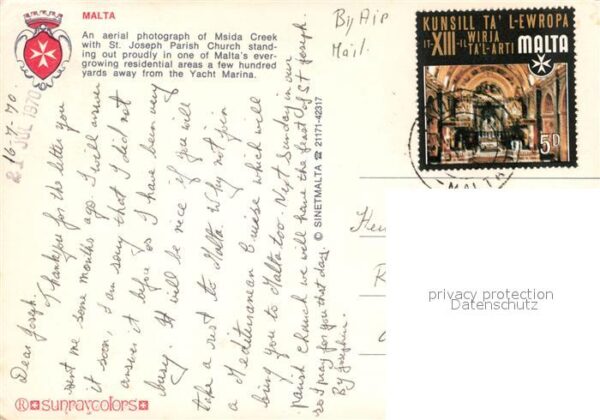 MALTA
An aerial photograph of Msida Creek
with St. Joseph Parish Church stand-
ing out proudly in one of Malta's ever-
growing residential areas a few hundred
yards away from the Yacht Marina.
By Air
Mail.
KUNSILL TA' L-EWROPA
IT-XIII-IL WIRJA
TA'L-ARTI
MALTA
5D
MALTA
16-7-70
21 JUL 1970
Dear Joseph.
Thankyou for the letter you
sent me some months ago. I will answer
it soon, I am sorry that I did not
answer it before as I have been very
busy. It will be nice if you will
take a rest to Malta. Why not join
a Mediteranean Cruise which will
bring you to Malta too. Next Sunday in our
parish church we will have the feast of St Joseph.
so I pray for you that day.
By Josephine.
© SINETMALTA ☎ 21171-42317
privacy protection
Datenschutz
K sunraycolors